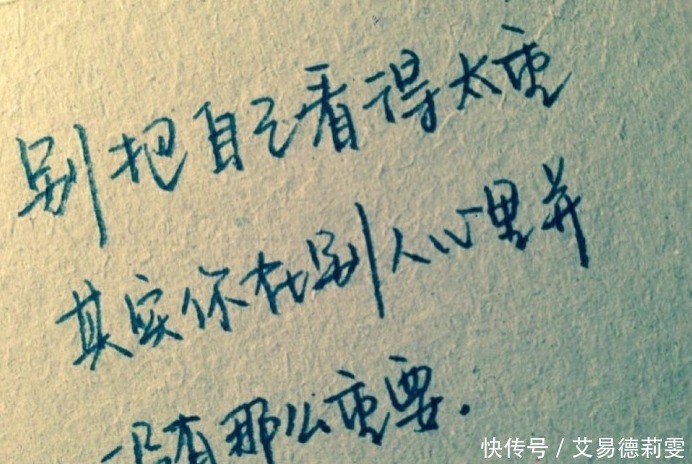 别把自己看得太重
其实你在别人心里并
没有那么重要.
快传号/艾易德莉雯